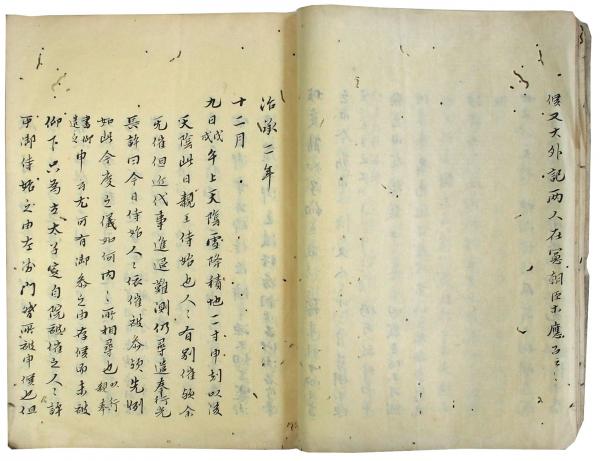 候又大外記両人在冥朝臣未應召云々
治承二年
十二月
九日戊戌午上天陰雪降積地一寸申刻以後
天陰此日親王侍始也人々有別催歟余
無催但近代事進退難測仍尋遣奉行光
長許曰今日侍始人々依催被参歟先例
如此今度之儀如何内々所相尋也以行親奉
書御遣之申云尤可有御参之由存候而未被
仰下只為立太子定自院被催之人々許
可御侍始之由左衛門督所被申候也但